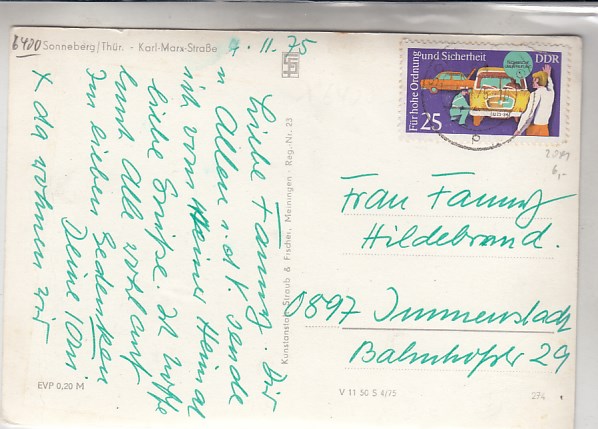 6400 Sonneberg/Thür. - Karl-Marx-Straße
4.11.75
Liebe Fanny. Dir
u Allen i. d. K. sende
ich vom Heimat
liebe Grüße. Ich hoffe
Euch Alle wohlauf
Im lieben Gedenken
Deine Toni
x da wohnen wir
EVP 0,20 M
Kunstanstalt Straub & Fischer, Meiningen - Reg.-Nr. 23
V 11 50 S 4/75
274
Für hohe Ordnung und Sicherheit
DDR
25
Frau Fanny
Hildebrand.
0897 Immenstadt
Bahnhofstr 29